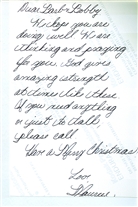 Dear Bart & Bobby
Hope you are
doing well. We are
thinking and praying
for you. God gives
amazing strength
at times like these.
If you need anything
or just to talk,
please call.
Have a Merry Christmas
Love